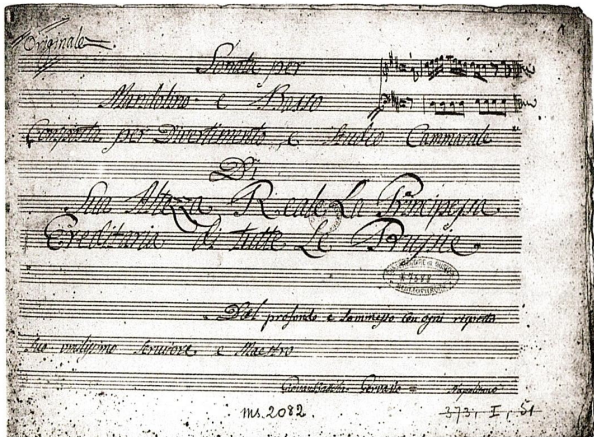 Originale
Sonata per
Mandolino e Basso
Composta per Divertimento, e Studio Cammarale
Di
Sua Altezza Reale La Principessa
Ereditaria di tutte Le Russie
Dal profondo e sommesso con ogni rispetto
Suo umilissimo servidore e Maestro
Giovanbattista Gervasio = Napolitano
ms. 2082.